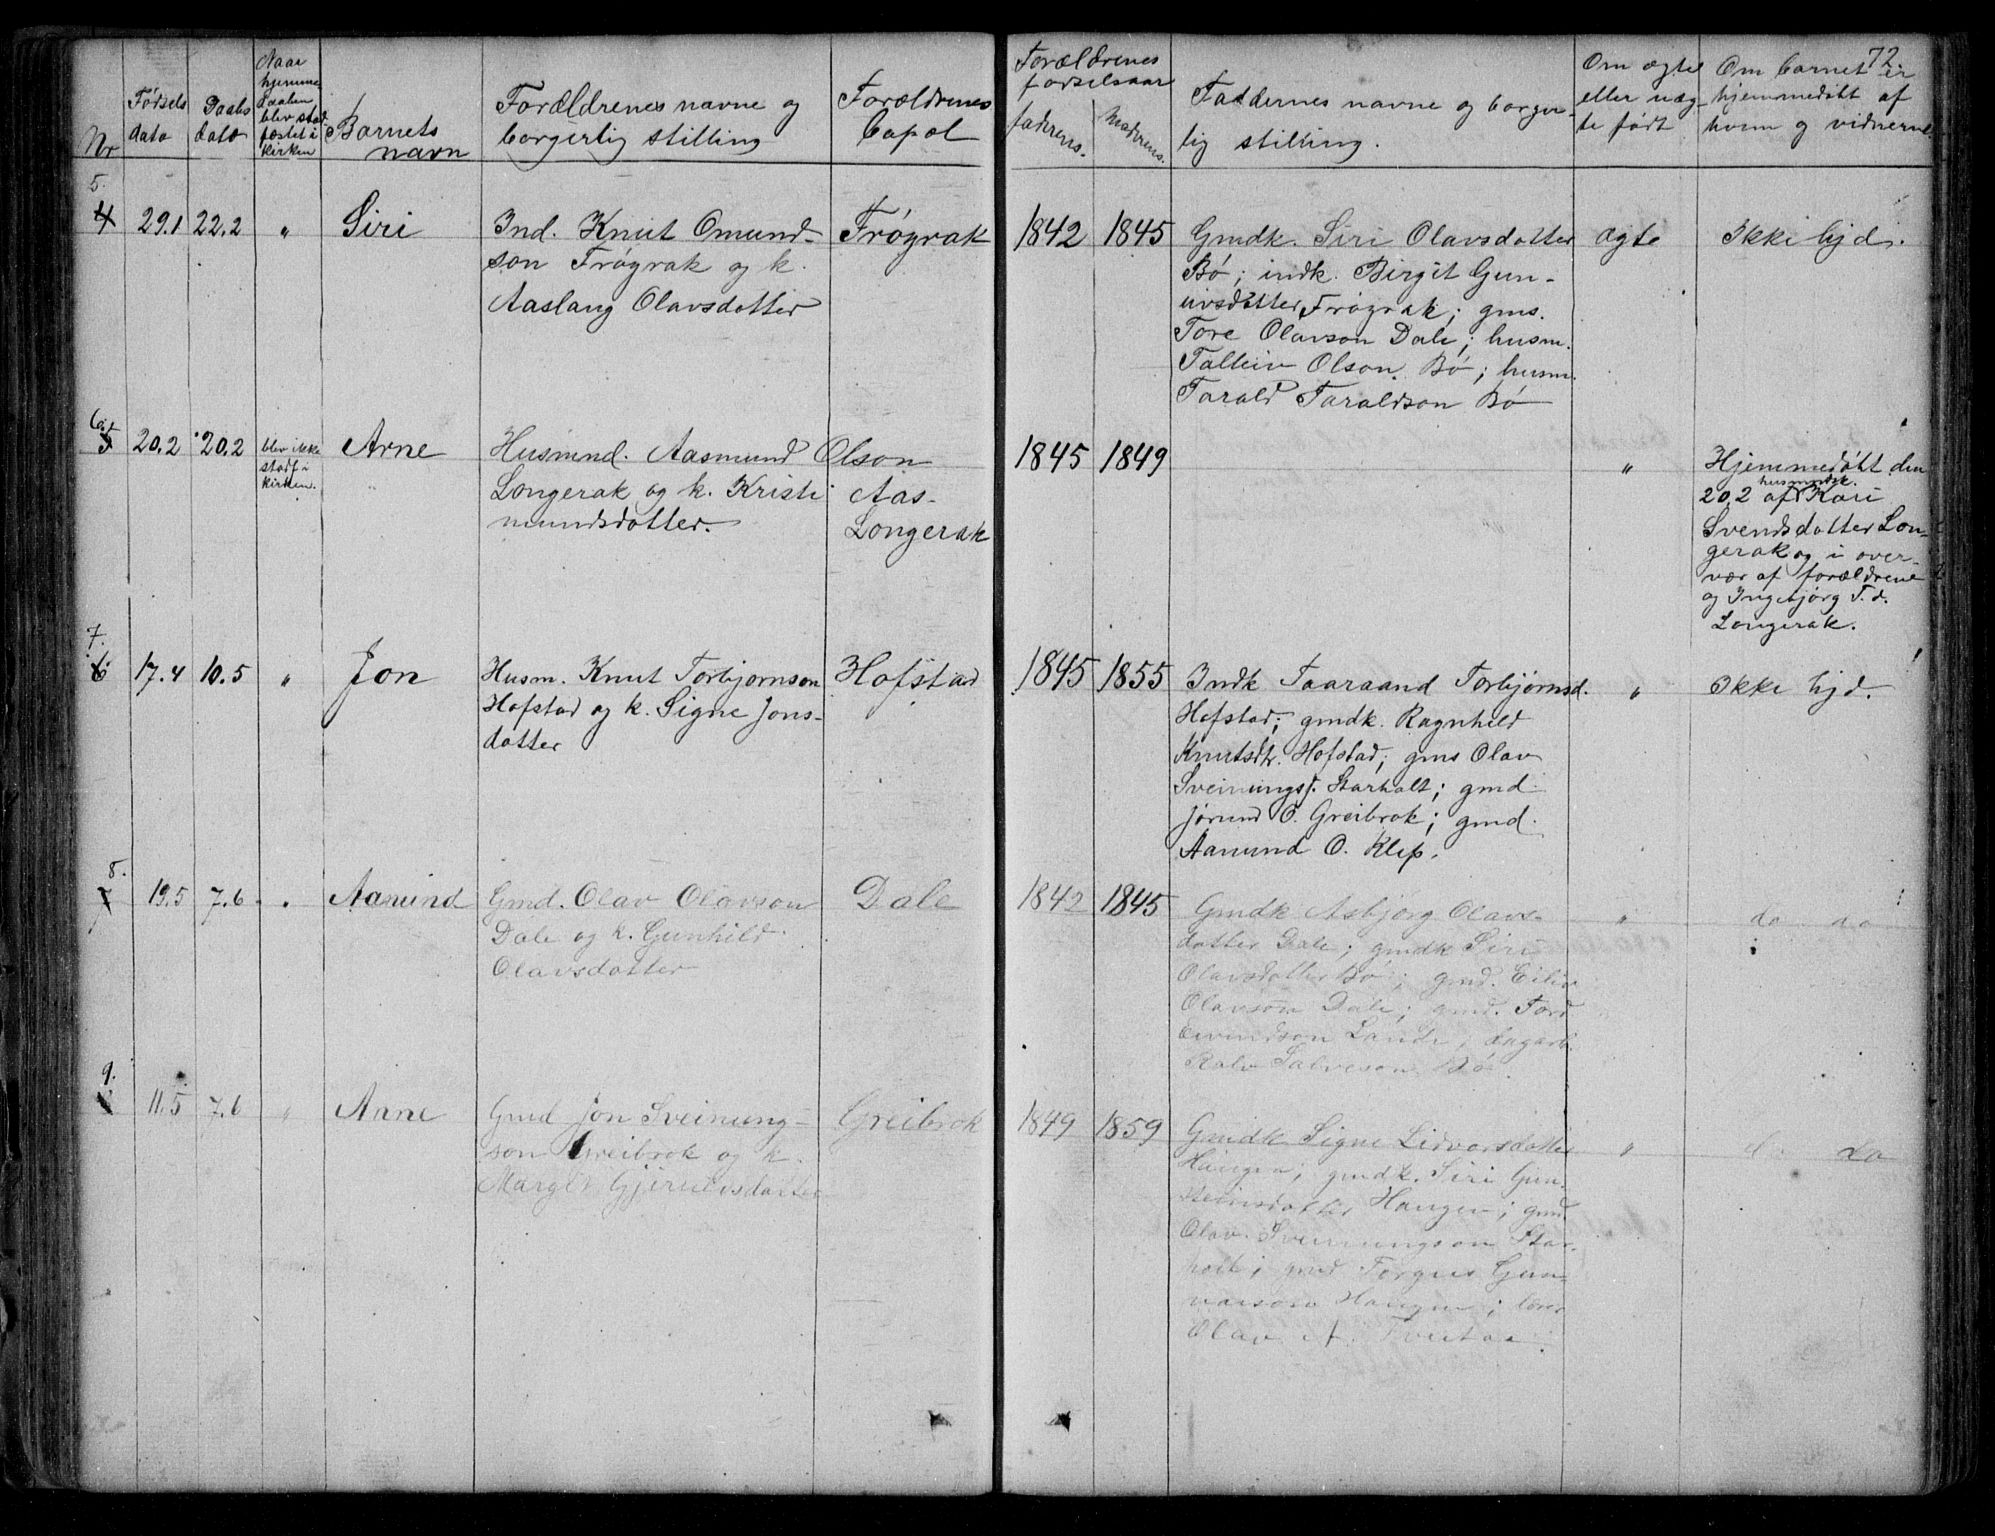 72
Nr
Fødsels
dato
Daabs
dato
Naar
hjemme
daaben
blev stad
fæstet i
kirken
Barnets
navn
Forældrenes navne og
borgerlig stilling
Forældrenes
bopæl
Forældrenes
fødselsaar
faderens.
moderens.
Faddernes navne og borger-
lig stilling.
Om ægte
eller uæg-
te født
Om barnet er
hjemmedøbt af
hvem og vidnerne
5.
4 29.1 22.2 " Siri
Ind. Knut Omund-
son Frøgrak og k.
Aaslaug Olavsdotter
Frøgrak
1842 1845
Gmdk. Siri Olavsdotter
Bø; indk. Birgit Gun-
uvsdotter Frøgrak; gms.
Tore Olavson Dale; husm.
Talleiv Olson Bø; husm.
Tarald Taraldson Bø
ægte
Ikke hjd.
6
5 20.2 20.2
blev ikke
stadf i
kirken.
Arne
Husmnd. Aasmund Olson
Longerak og k. Kristi Aas-
mundsdotter.
Longerak
1845 1849
"
Hjemmedøbt den
husmndk.
20.2 af Kari
Svendsdotter Lon-
gerak og i over-
vær af forældrene
og Ingebjørg T.d.
Longerak.
7.
6 17.4 10.5 " Jon
Husm. Knut Torbjørnson
Hofstad og k. Signe Jons-
dotter
Hofstad
1845 1855
Indk Taaraand Torbjørnsd.
Hofstad; gmdk. Ragnhild
Knutsdtr. Hofstad; gms Olav
Sveinungs. Starholt; gmd
Jørund O. Greibrok; gmd.
Aanund O. Klep.
"
Ikke hjd.
8.
7 19.5 7.6 " Aanund
Gmd. Olav Olavson
Dale og k. Gunhild
Olavsdotter
Dale
1842 1845
Gmdk Asbjørg Olavs-
dotter Dale; gmdk Siri
Olavsdotter Bø; gmd. Eiliv
Olavson Dale; gmd. Tord
Eivindson Lande; dagarb.
Salveson Bø
"
do do
9.
11.5 7.6 " Anne
Gmd Jon Sveinung-
son Greibrok og k.
Margit
Greibrok
1849 1859
Gmdk Signe Lidvorsdotter
Haugen; gmdk. Siri Gun-
steinsdotter Haugen; gmd.
Olav Sveinungson Star-
holt; gmd Torgrus Gun-
narson Haugen; lærer
Olav A. Tveitaa
"
do do